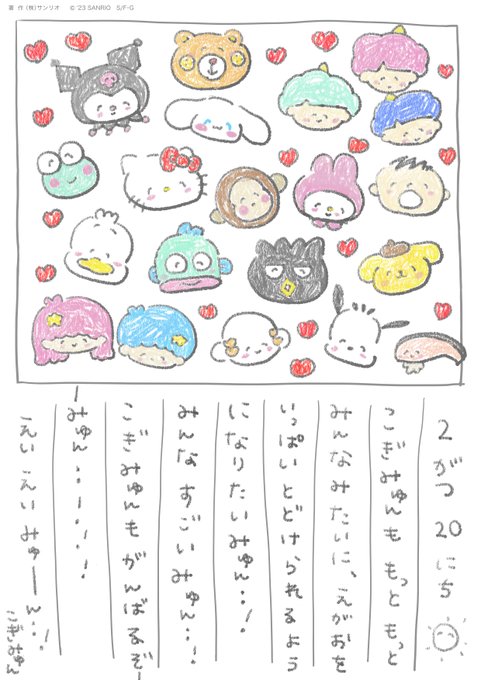 著作(株)サンリオ © '23 SANRIO S/F·G
2がつ20にち
こぎみゅんももっともっと
みんなみたいに、えがおを
いっぱいとどけられるよう
になりたいみゅん…!
みんなすごいみゅん…!
こぎみゅんもがんばるぞー
みゅん…!!!
えいえいみゅーん…!
こぎみゅん